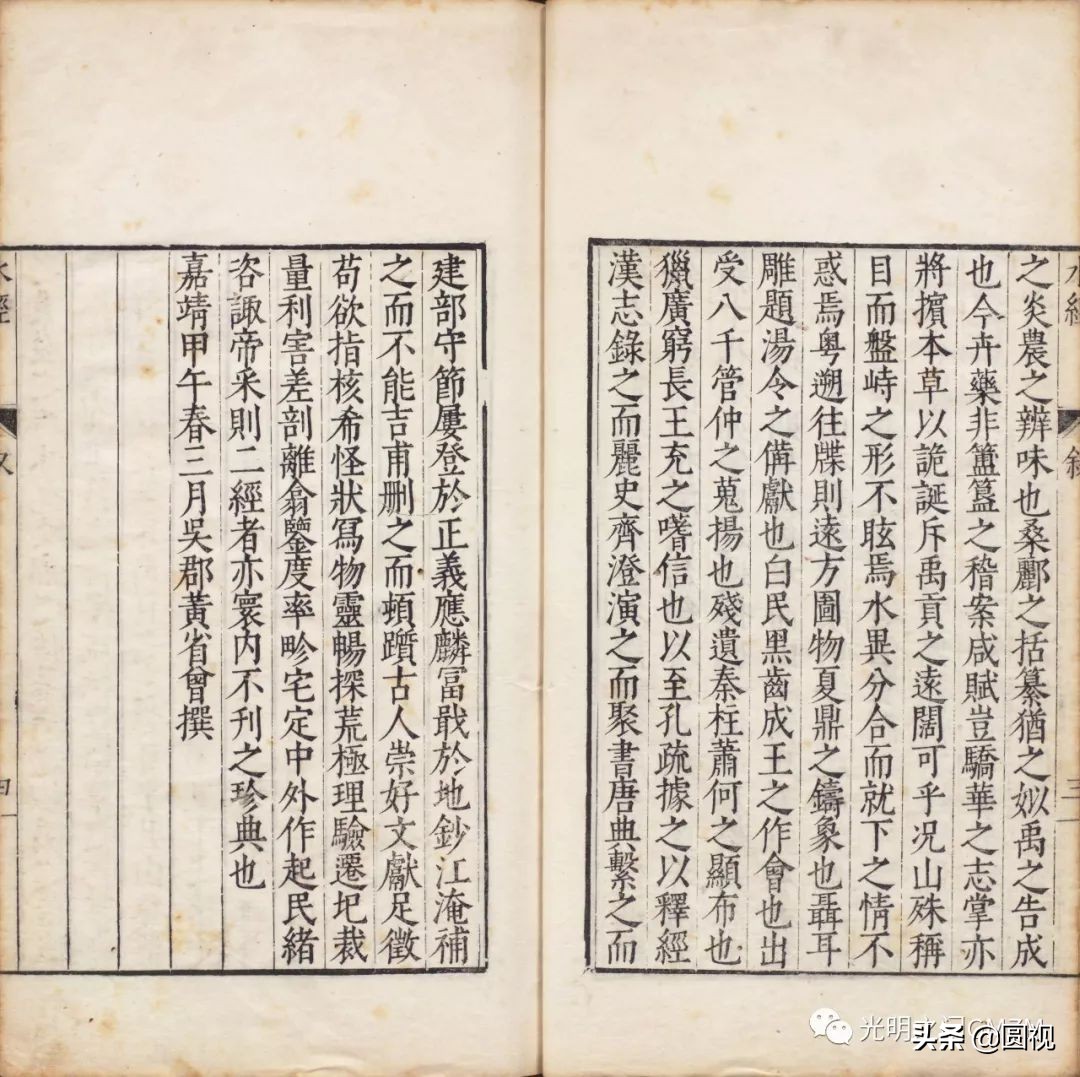 之炎農之辨味也桑酈之括纂猶之姒禹之告成
也今卉藥非簠簋之稽案咸賦豈驕華之志掌亦
將擯本草以詭誕斥禹貢之遠闊可乎况山殊稱
目而盤峙之形不眩焉水異分合而就下之情不
惑焉粤遡往牒則遠方圖物夏鼎之鑄象也聶耳
雕題湯令之備獻也白民黑齒成王之作會也出
受八千管仲之蒐揚也殘遺秦柱蕭何之顯布也
獵廣窮長王充之嗜信也以至孔疏據之以釋經
漢志錄之而麗史齊澄演之而聚書唐典繫之而
建部守節屢登於正義應麟冨戢於地鈔江淹補
之而不能吉甫刪之而頓躓古人崇好文獻足徵
苟欲指核希怪狀寫物靈暢探荒極理驗遷圯裁
量利害差剖離翕鑒度率畛宅定中外作起民緒
咨諏帝采則二經者亦寰内不刊之珍典也
嘉靖甲午春三月吳郡黃省曾撰
水經
三
四
光明之记GMZM
头条 @圆视